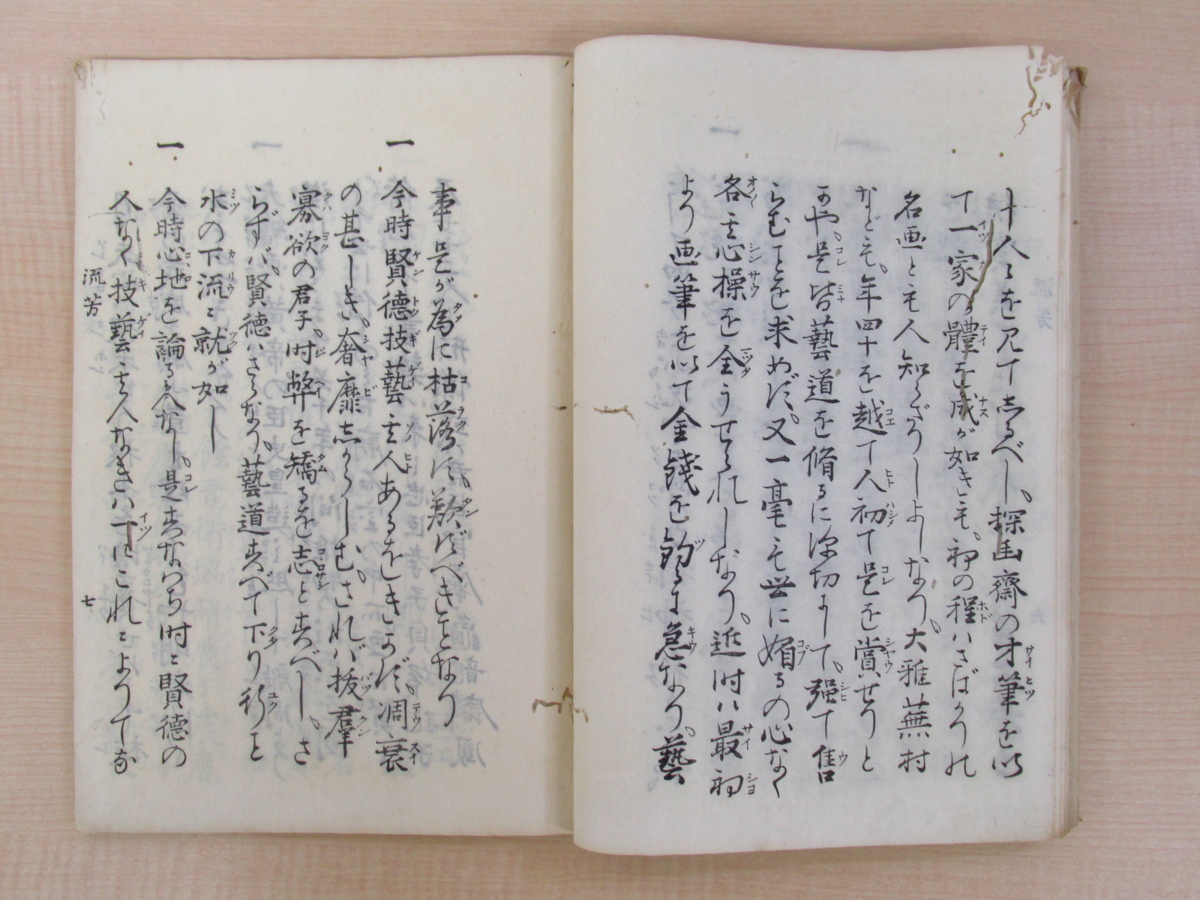 十人ニを見て志るべし、探幽齋の才筆を以
て一家の體を成が如きも、初の程ハさばかりれ
名画とも人知らざりしよしなり、大雅蕪村
なども、年四十を越て人初て是を賞せりと
かや、是皆藝道を脩るに深切にして、強て售
らむことを求めず、又一毫も世に媚るの心なく
各其心操を全うせられしなり、近時ハ最初
より画筆を以て金錢を釣るに急なり、藝
事是が為に枯落す、歎ずべきことなり
一 今時賢德技藝其人あるをきかず、凋衰
の甚しき、奢靡志からしむ、されバ拔羣
寡欲の君子、時弊を矯るを志と春べし、さ
らずバ賢德ハさらなり、藝道春べて下り行こと
水の下流ニ就が如し
一 今時心地を論る人なし、是春なハち時ニ賢德の
人なく技藝其人なきハ一にこれニよりてな
流芳
七